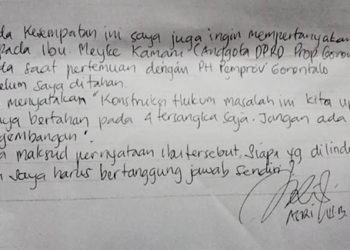 da Kesempatan ini saya juga ingin mempertanyakan
pada Ibu Meyke Kamaru (Anggota DPRD Prop Goron
da saat pertemuan dengan PH Pemprov Gorontalo
elum saya ditahan.
menyatakan "Konstruksi Hukum masalah ini kita up
ya bertahan pada 4 tersangka saja. Jangan ada
gembangan".
a maksud pernyataan Ibu tersebut. Siapa yg dilindu
a saya harus bertanggung jawab sendiri